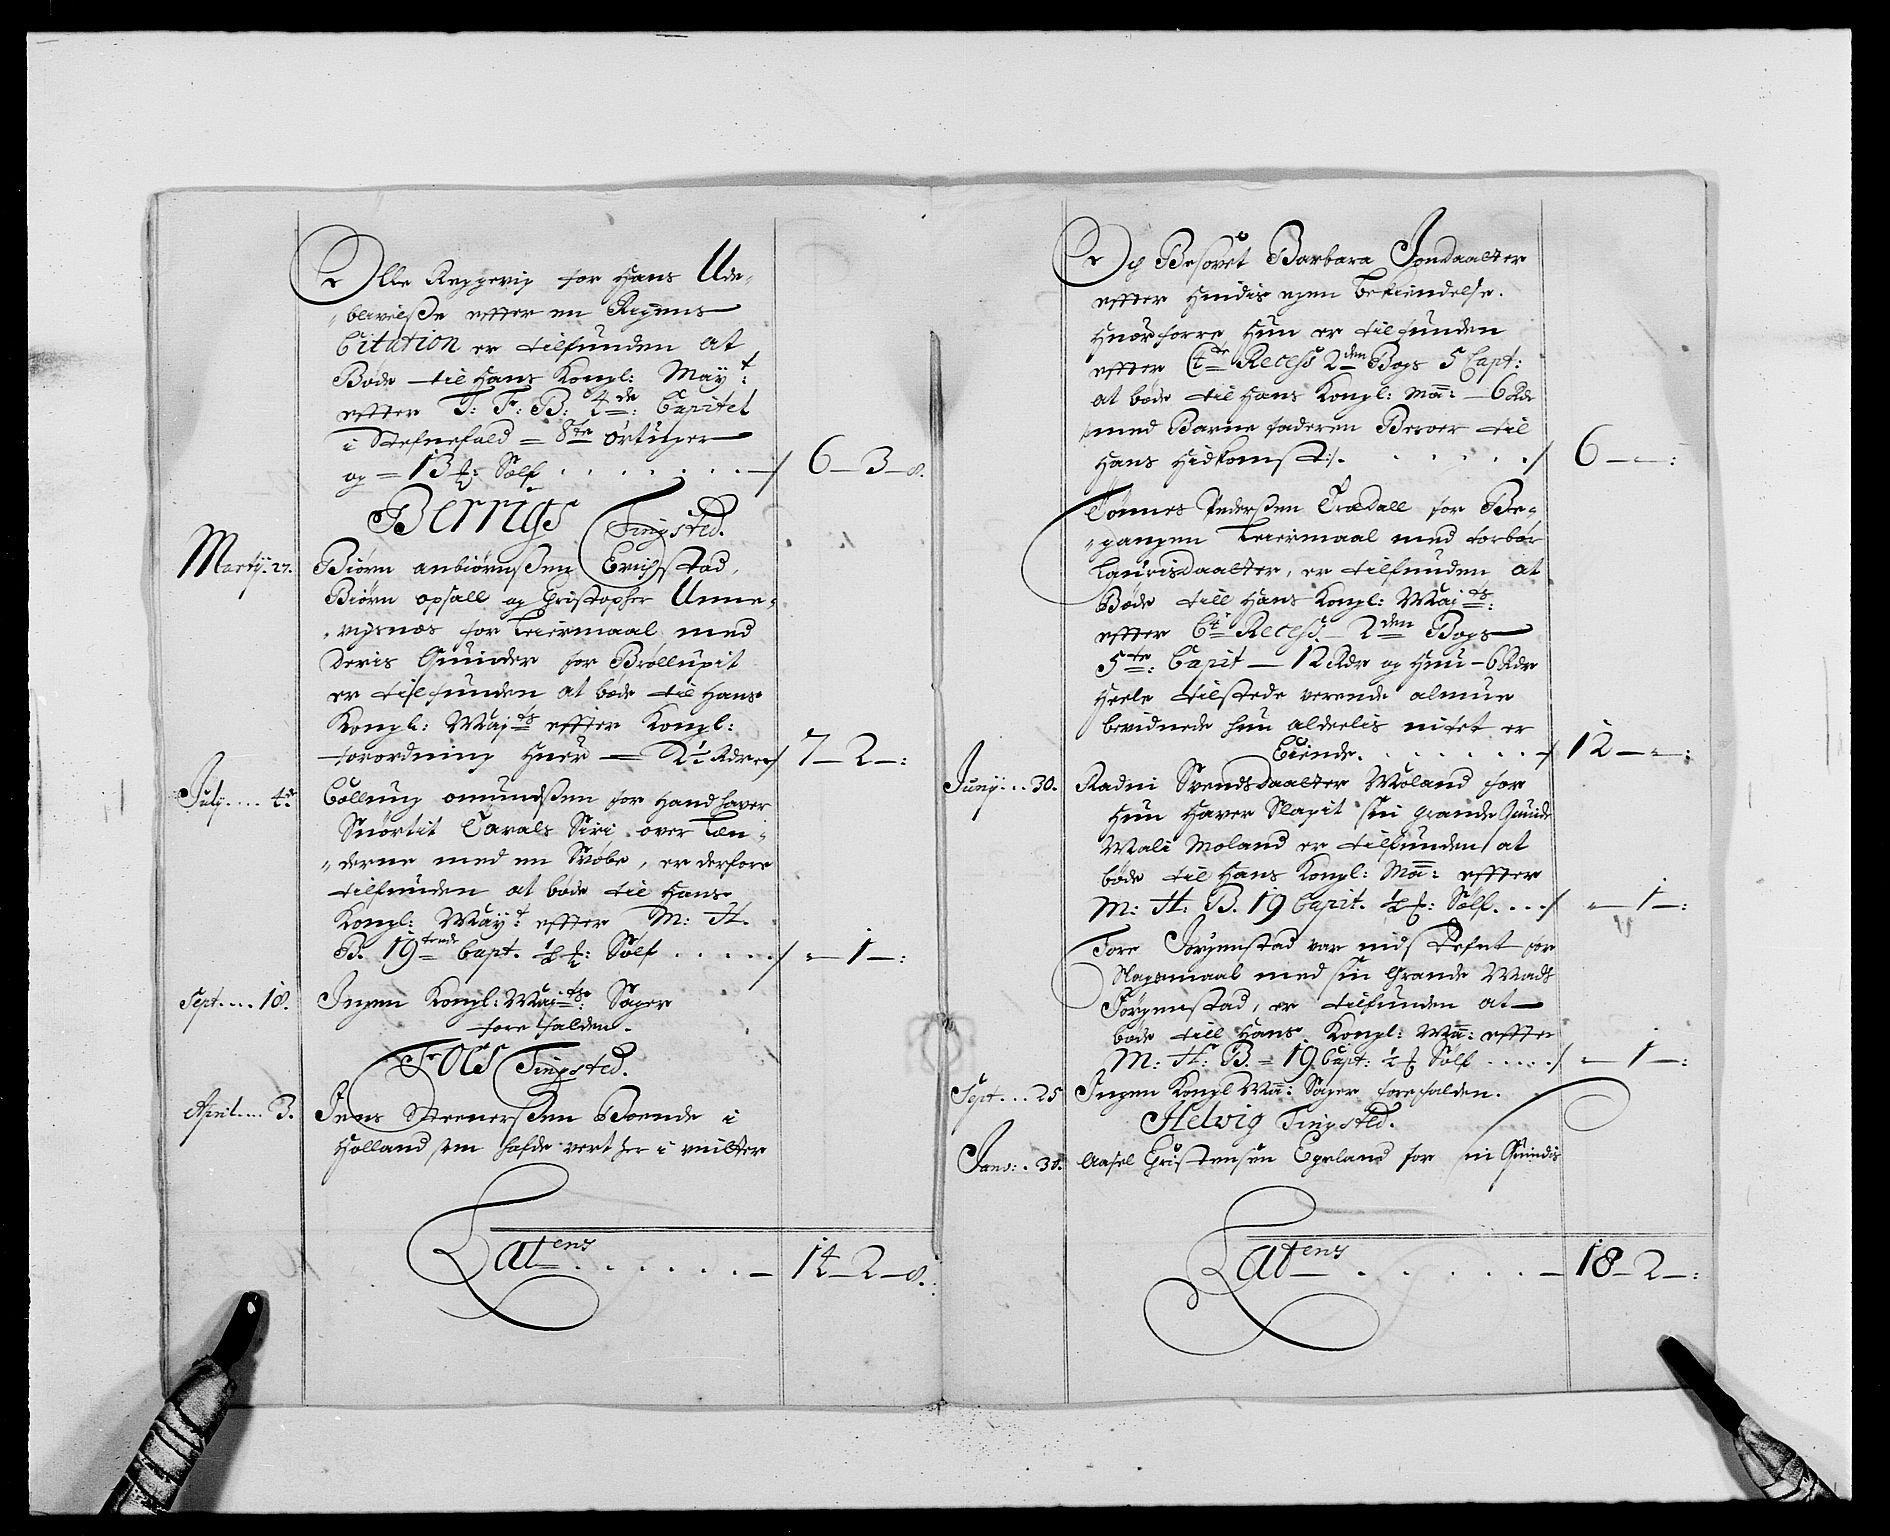 Olle Reppevig for Hans Ude-
"blivelsse effter en Rigens
Citation er tilfunden at
Bøde til Hans Kongl: May:t
effter T: F: B: 4de: Capitel
i Stefnefald = 8te ørtuger
og = 13 £: Sølf . . . . . . . — / 6 — 3 — 8.
Berrigs Tingsted.
Martij. 27. Biørn anbiørnssen Erichstad,
Biørn opsall og Christopher Unne-
for Leiermaal med
Deris Quinder for Brøllupit
er tilfunden at bøde til Hans
Kongl: Maj:ts effter Kongl:
forordning Huer — 2½ Rdr / 7 — 2 — :
July .... 4de omundssen for Hand haver
Siri over Læn-
"derne med en Svøbe, er derfore
tilfunden at bøde til Hans
Kongl: May:t effter M: H.
B. 19tende Capt. ½ £: Sølf . . . . . / " — 1 — :
Sept .... 18. Ingen Kongl: Maj:ts: Sager
fore falden.
Fols Tingsted.
April .... 3. Jens Steenerssen Boende i
Holland som hafde vert her i
Latens . . . . . . — 14 — 2 — 8.
Og Besovet Barbara Jonsdaatter
effter Hendis egen bekiendelse.
Huorforre Hun er tilfunden
effter C4te Recess 2den Bogs 5 Capt:
at bøde til Hans Kongl: Ma: — 6 Rdr
med Barne faderen Beroer til
Hans Hidkomst :/. . . . . . / 6 — " — :
Tønnes Pedersen Trædall for Be-
"gangen Leiermaal med Torbor
Lauridsdaatter, er tilfunden at
Bøde till Hans Kongl: Maj:ts:
effter C4 Recess — 2den Bogs
5te: Capit — 12 Rdr og Hun — 6 Rdr
Heele tilstede verende almue
bevidnede hun alderlis intet er
Eiende. . . . . . . / 12 — " — :
Junij ... 30. Radni Svendsdaatter Moland for
Hun Haver Slagit sin grande Quinde
Mali Moland er tilfunden at
bøde til Hans Kongl: Ma: effter
M: H: B. 19 Capit. ½ £: Sølf. . . . / " — 1 — :
Tore Jørgenstad var indstefnt for
Slagsmaal med sin Grande Mads
Jørgenstad, er tilfunden at
bøde till Hans Kongl: Ma: effter
M: H: B. = 19 Capt: ½ £ Sølf . . . . . / " — 1 — :
Sept ... 25 Ingen Kongl Ma: Sager forefalden.
Helvig Tingsted.
Janv: . 31. Aasel Christensen Egeland for sin Quindis
Latens . . . . . — 18 — 2 — :